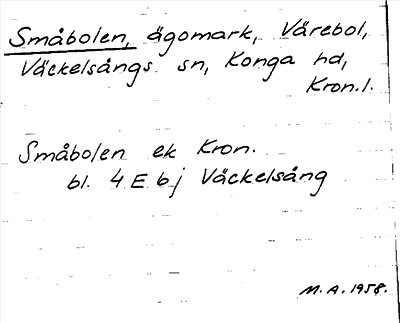 Småbolen, ägomark, Värebol,
Väckelsångs sn, Konga hd,
Kron.l.
Småbolen ek Kron.
bl. 4 E b j Väckelsång
M.A. 1958.